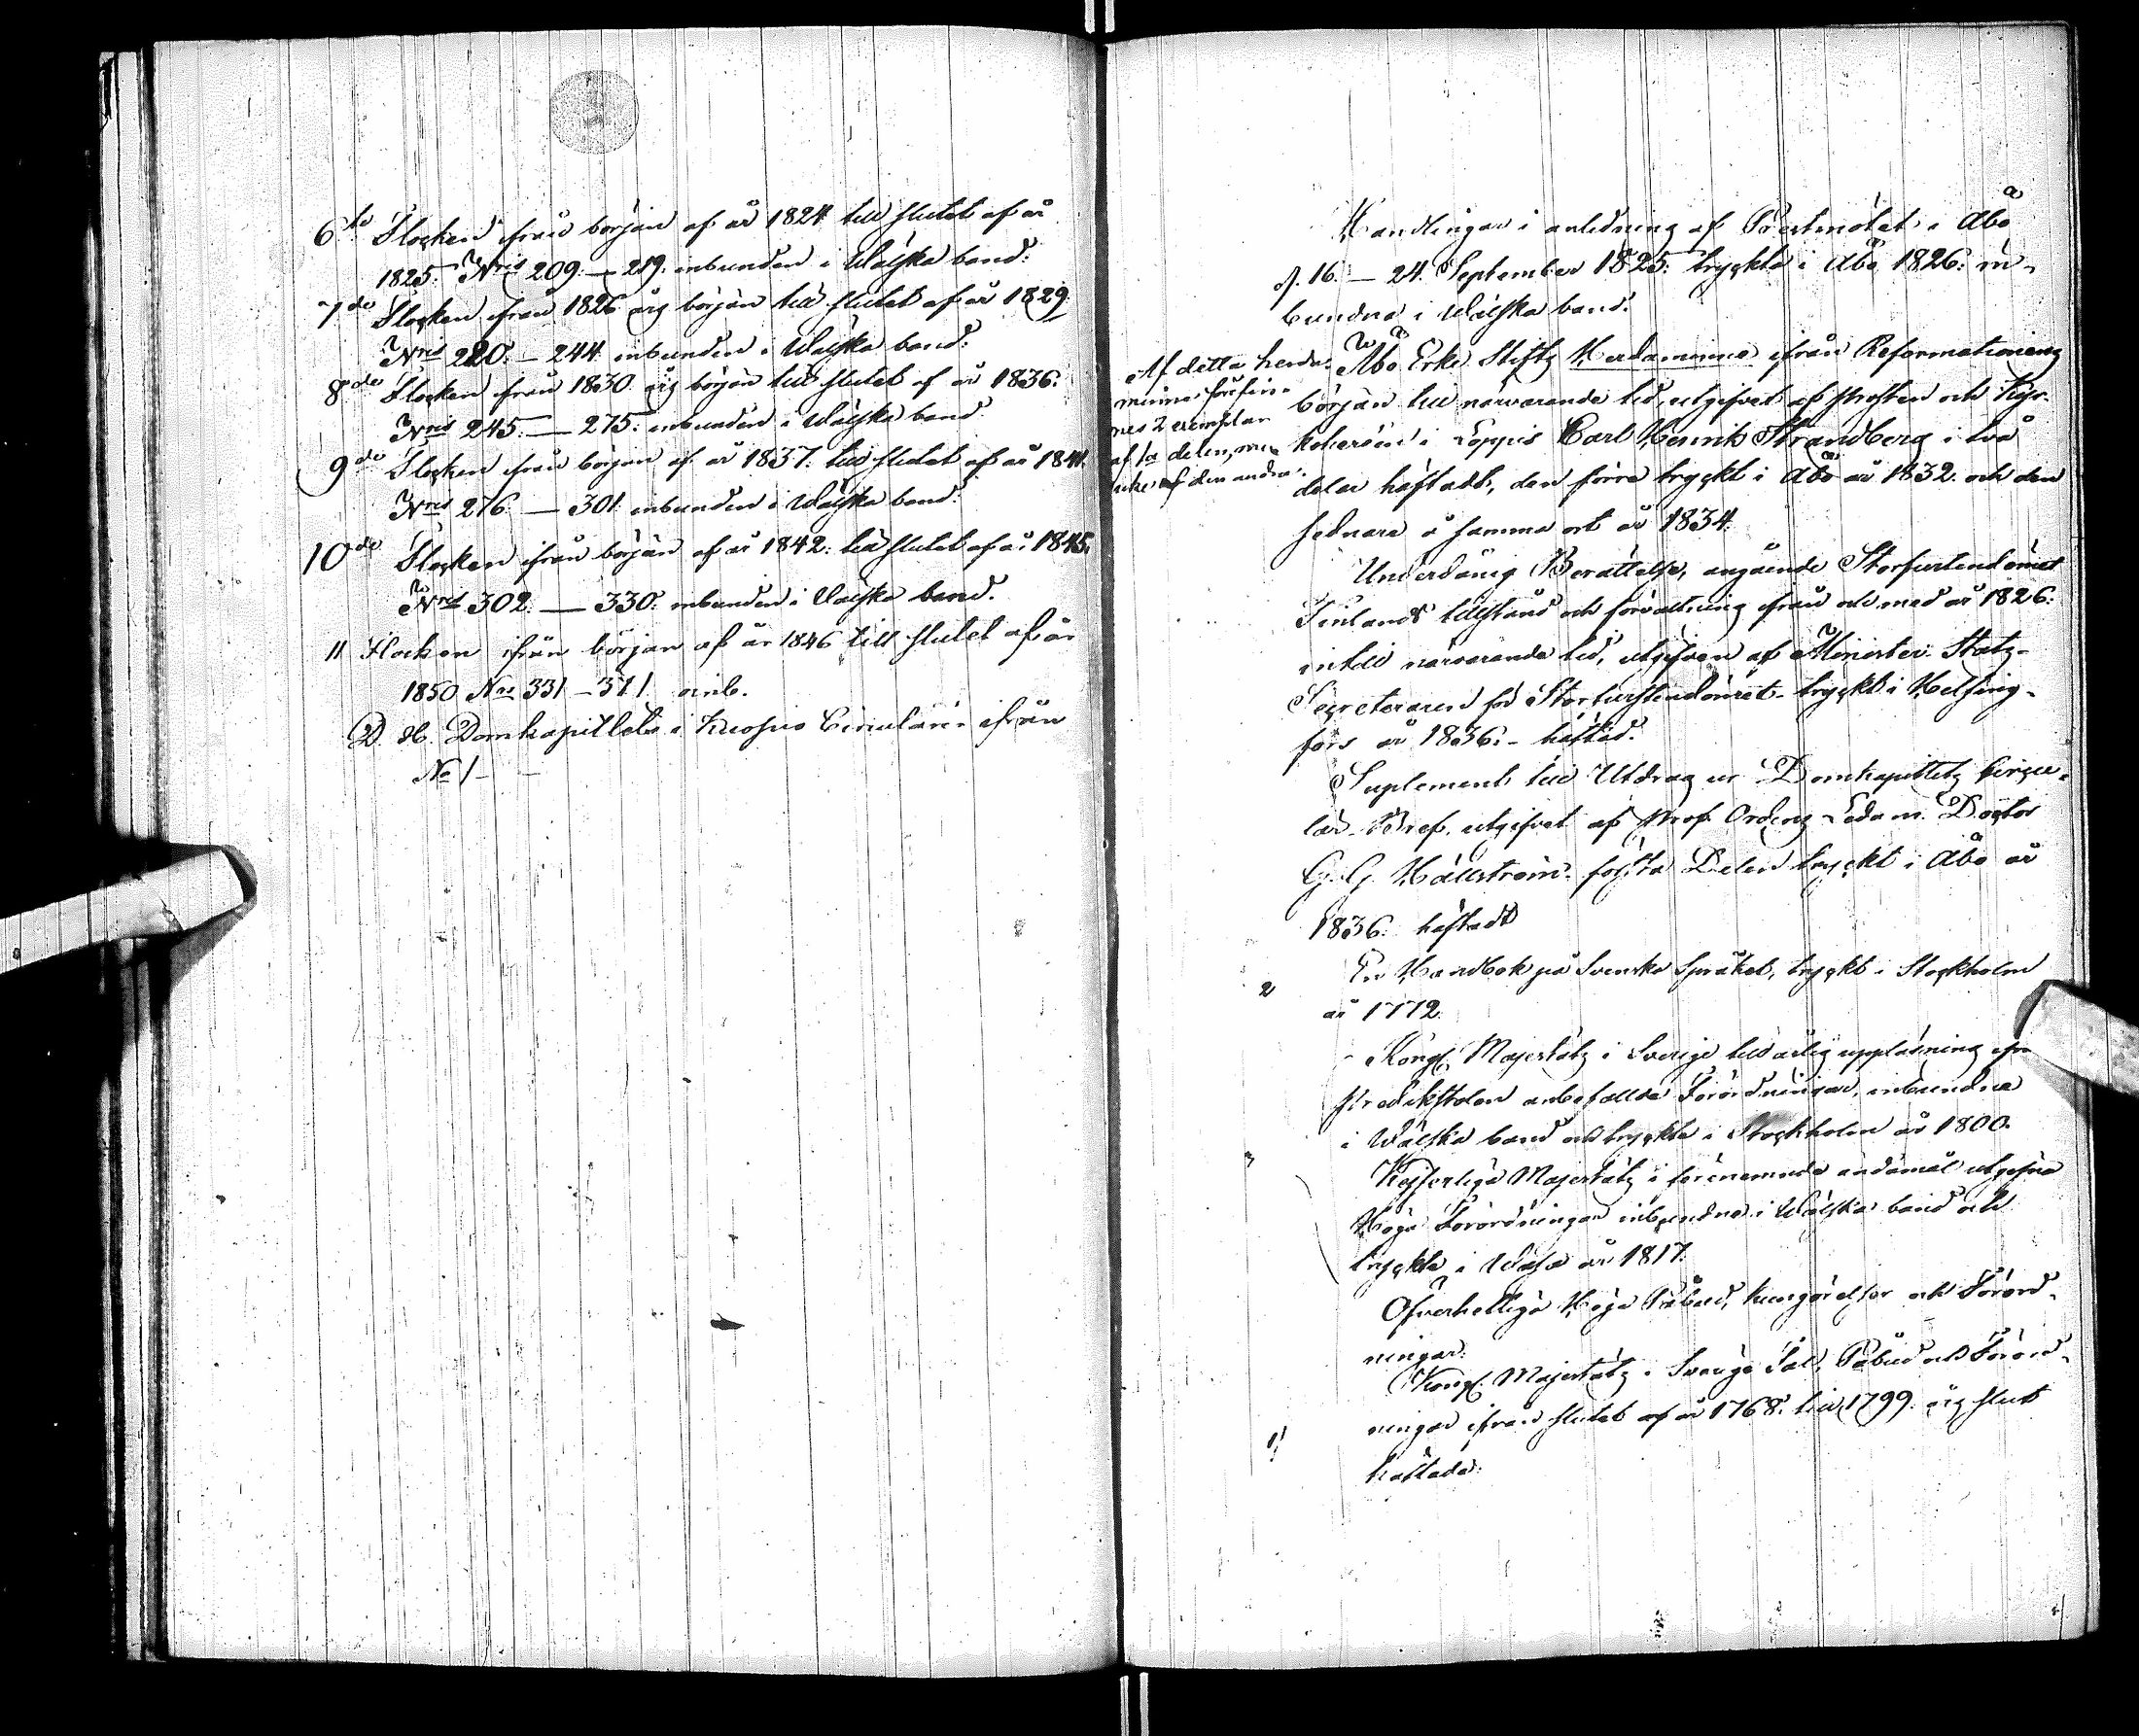 6te Flocken ifrån början af år 1824 till slutet af år
1825. Nris 209. — 219. inbunden i Wälska band.
7de Flocken ifrån 1826 års början till slutet af år 1829.
Nris 220. — 244. inbunden i Wälska band.
8de Flocken ifrån 1830 års början till slutet af år 1836.
Nris 245. — 275. inbunden i Wälska band.
9de Flocken ifrån början af år 1837. till slutet af år 1841.
Nris 276. — 301. inbunden i Wälska band.
10de Flocken ifrån början af år 1842. till slutet af år 1845.
Nris 302. — 330. inbunden i Wälska band.
11 Flocken ifrån början af år 1846 till slutet af år
1850 Nris 331 — 371. oinb.
D. H. Domkapitlets i Kuopio Cirkulär ifrån
No 1 -
Handlingar i anledning af Prestmötet i Åbo
d. 16. — 24. September 1825. tryckta i Åbo 1826. in-
bundna i Wälska band.
Af detta herda-
minne förefin-
nes 2 exemplar
af 1a delen, men
icke af den andra.
Åbo Erke Stifts Herdaminne ifrån Reformationens
början till närvarande tid, utgifvet af Prosten och Kyr-
koherden i Loppis Carl Henrik Strandberg i två
delar häftadt, den förra tryckt i Åbo år 1832. och den
sednare å samma ort år 1834.
Underdånig Berättelse, angående Storfurstendömet
Finlands tillstånd och förvaltning ifrån och med år 1826.
intill närvarande tid, utgifven af Minister Stats-
Secreteraren för Storfurstendömet. tryckt i Helsing-
fors år 1836. - häftad.
Suplement till Utdrag ur Domkapitlets Circu-
lär-Bref. utgifvet af Prof. Ordens Ledam. Doctor
G. G. Hällström. första Delen tryckt i Åbo år
1836. häftadt
2 En Handbok på Svenska Språket, tryckt i Stockholm
år 1772.
Kongl. Majestäts i Sverige till årlig uppläsning ifrån
Predikstolen anbefallda Förordningar, inbundna
i Wälska band och tryckta i Stockholm år 1800.
Kejserliga Majestäts i förenämnda ändamål utgifna
Höga Förordningar inbundna i Wälska band och
tryckta i Wasa år 1817.
Öfverhetliga Höga Påbud, kungörelser och Förord-
ningar.
Kongl. Majestäts i Sverige Tal, Påbud och Förord-
ningar ifrån slutet af år 1768. till 1799. års slut
häftade.